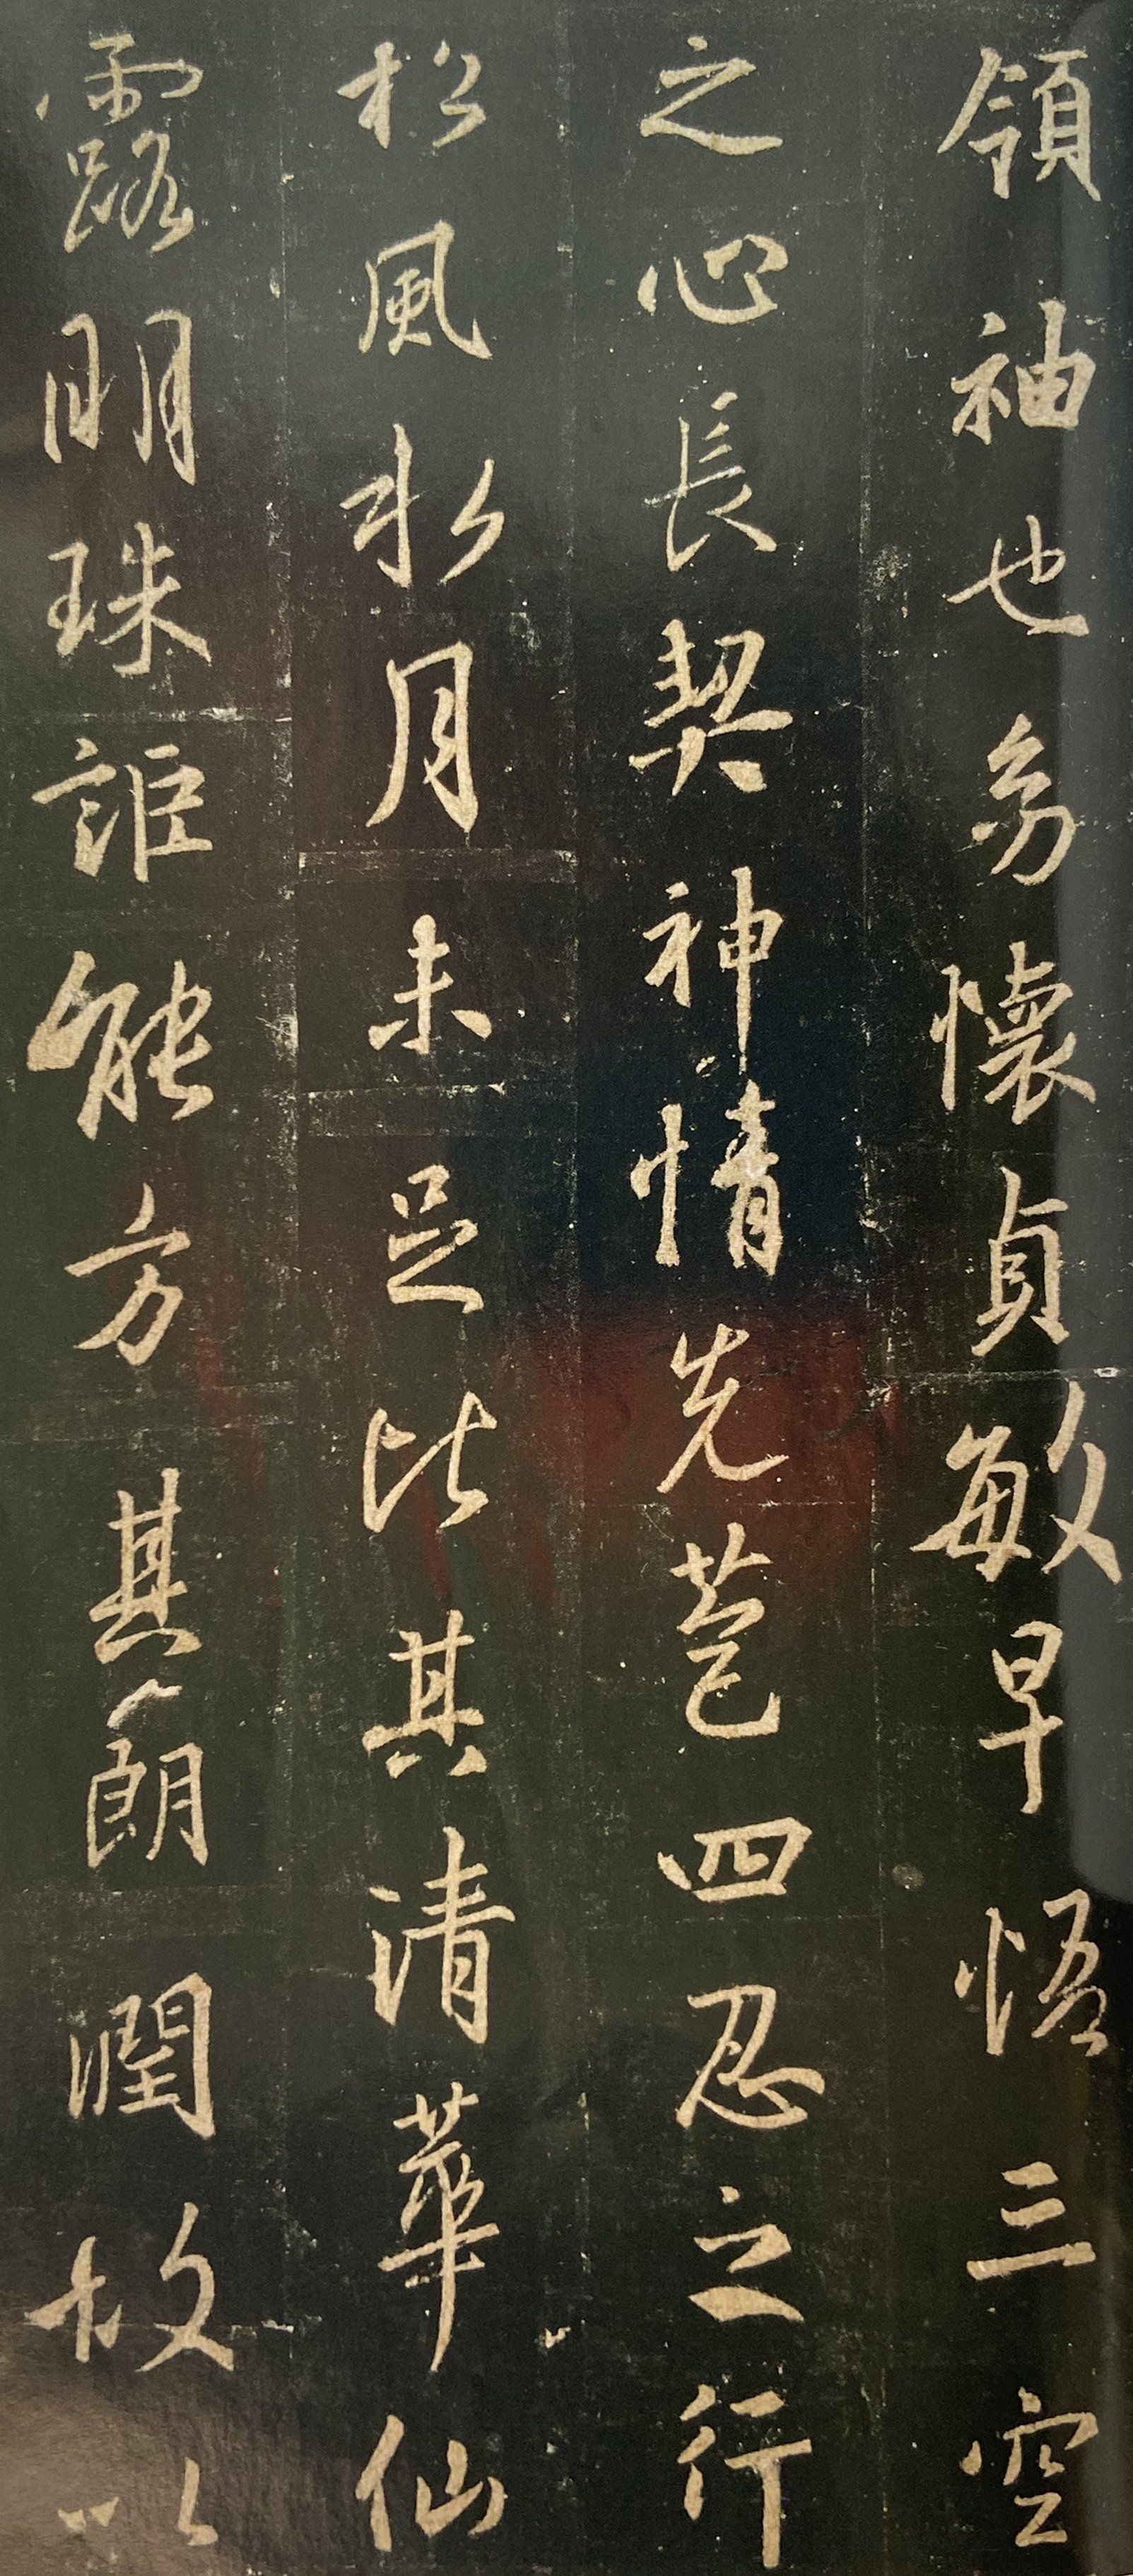 領袖也幼懷貞敏早悟三空
之心長契神情先苞四忍之行
松風水月未足比其清華仙
露明珠詎能方其朗潤故以